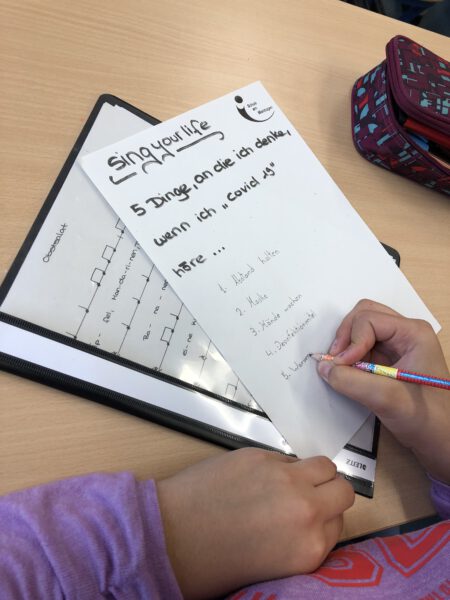 Sing your life
5 Dinge, an die ich denke,
wenn ich „Covid 19"
höre ...
1. Abstand halten
2. Maske
3. Hände waschen
4. Desinfektionsmittel
5.
Obstsalat
LEITZ